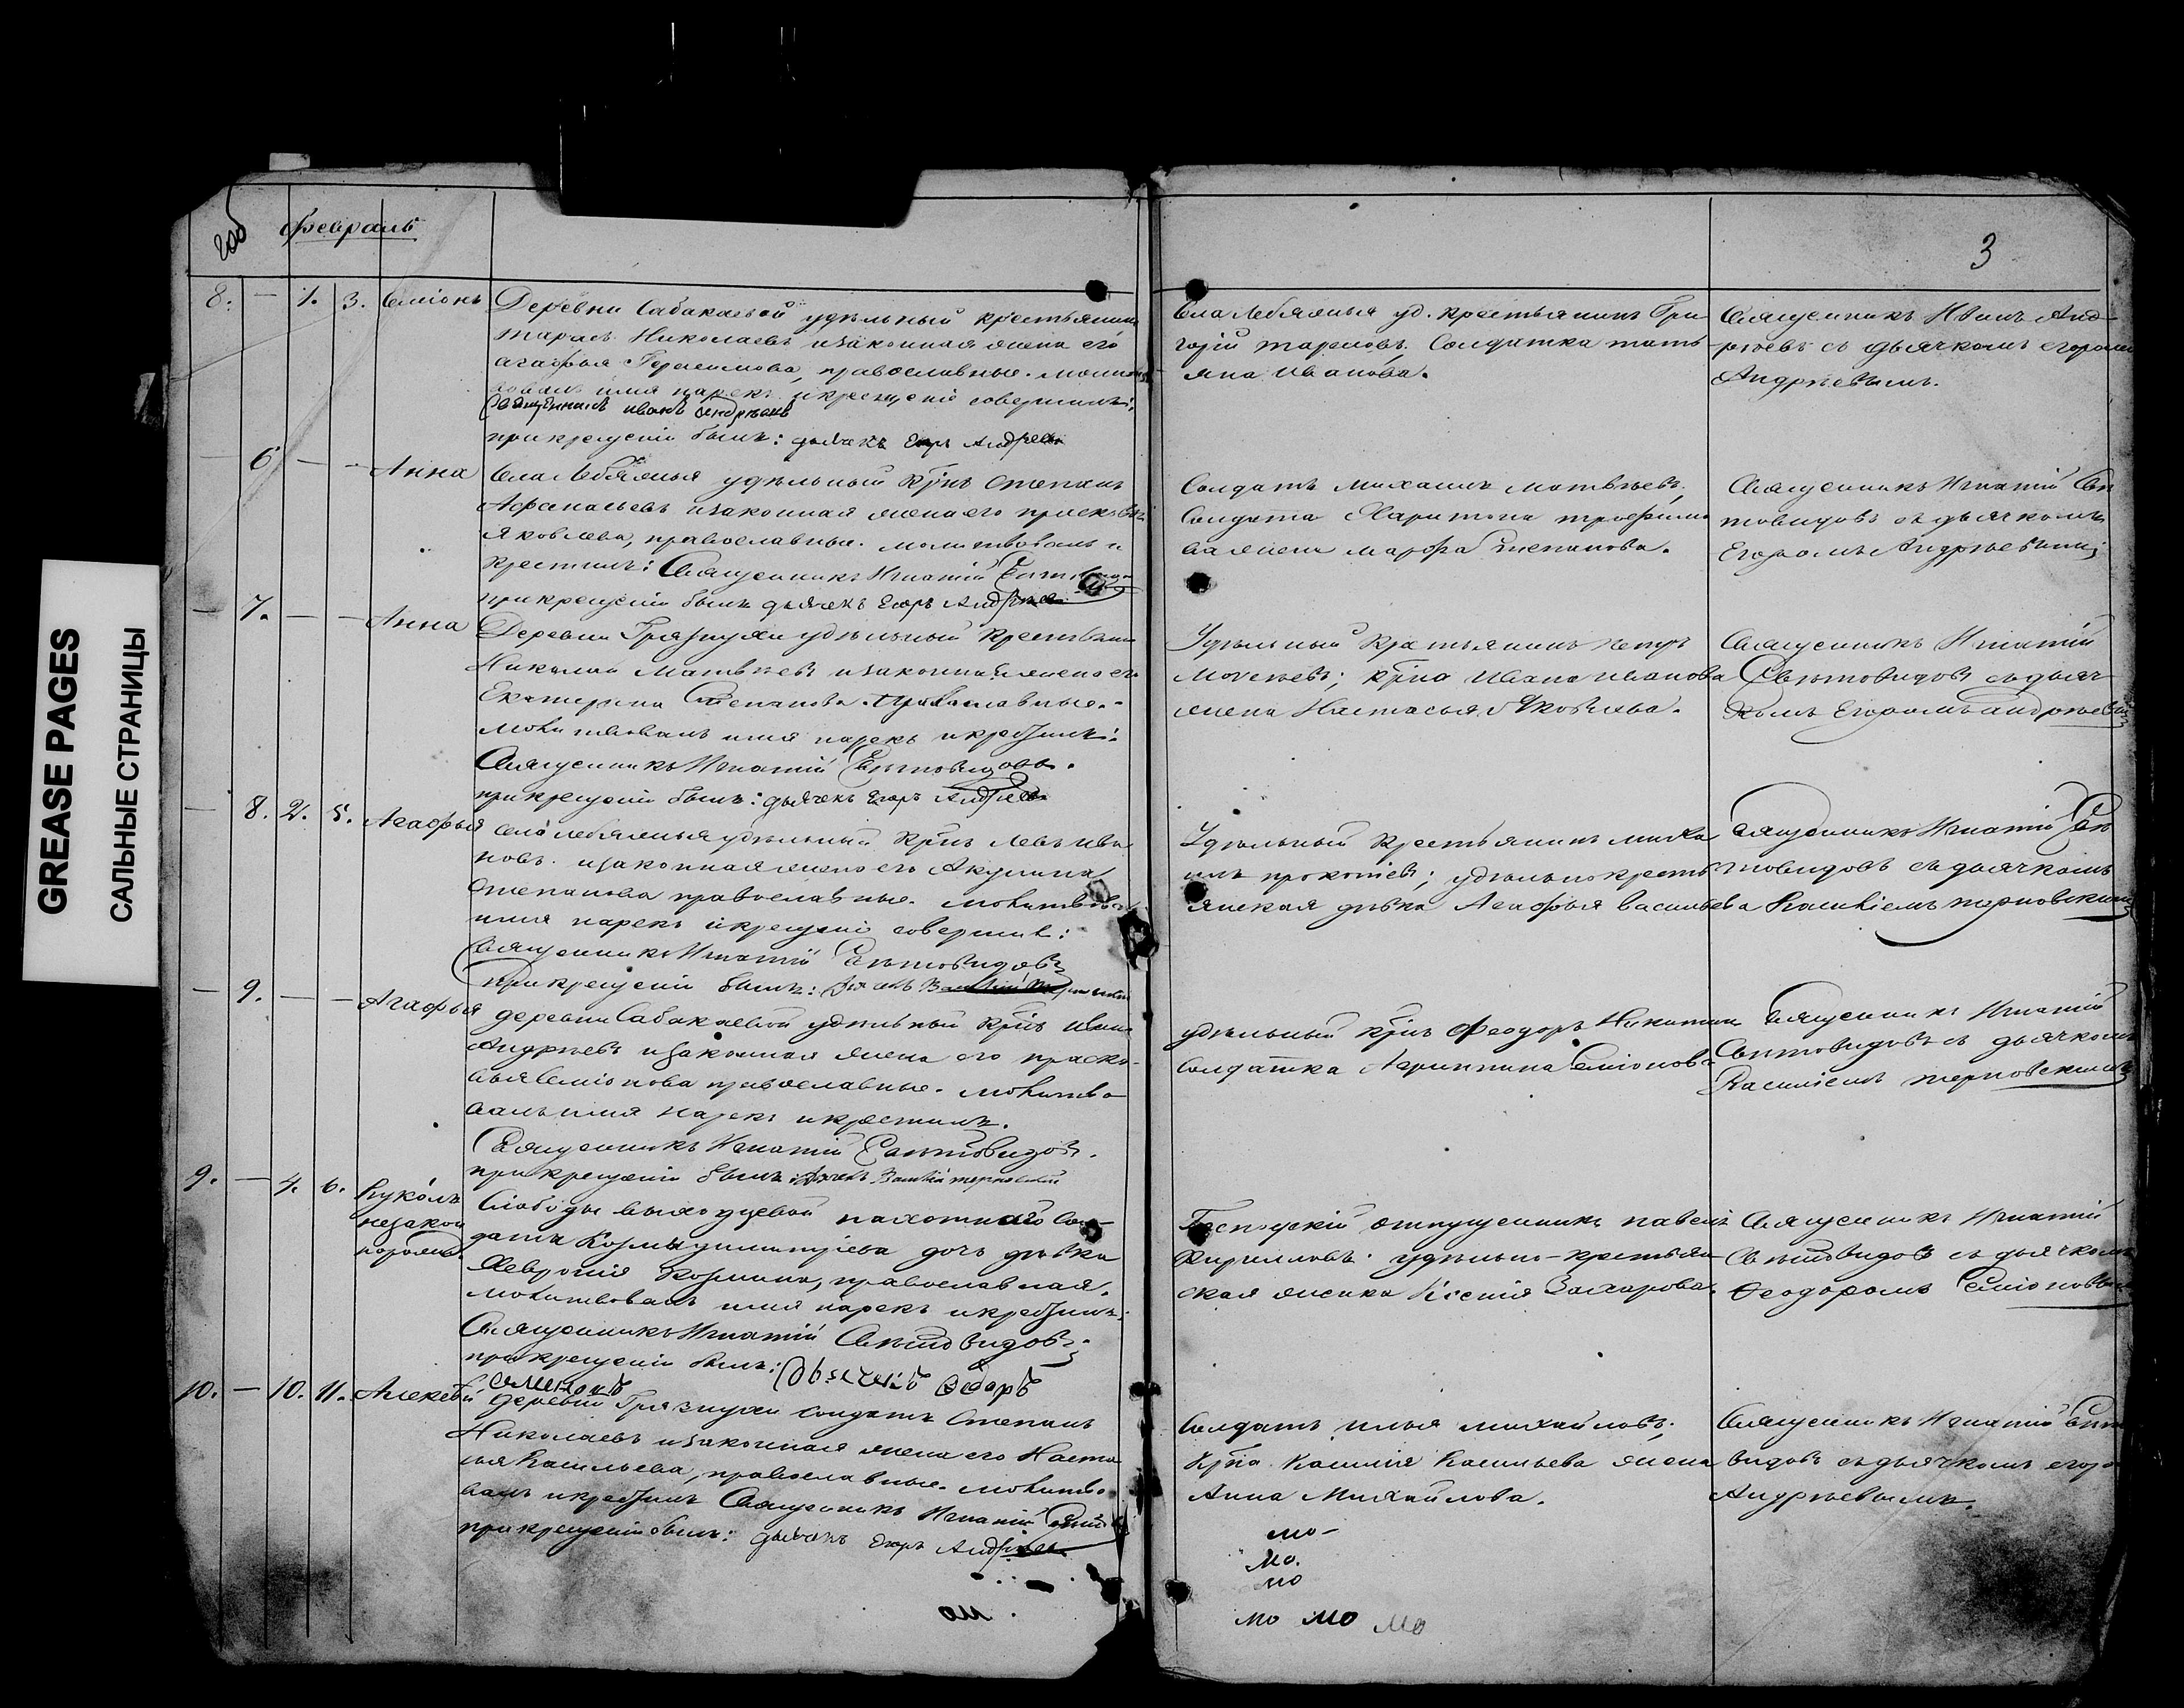 GREASE PAGES
САЛЬНЫЕ СТРАНИЦЫ
2об
Февраль
3
8. — 1. 3. Симіонъ
Деревни Сабакаевой удѣльный крестьянинъ
Тарасъ Николаевъ и законная жена его
Агафья Герасимова, православные. молит
вовалъ имя нарекъ и крещеніе совершилъ:
Священникъ Иванъ Андрѣевъ
при крещеніи былъ: дьячекъ Егоръ Андреевъ
Села Лебяжья уд. крестьянинъ Гри
горій Тарасовъ, Солдатка Тать
яна Иванова.
Священникъ Иванъ Анд
рѣевъ съ дьячкомъ Егоромъ
Андрѣевымъ.
— 6 — — Анна
Села Лебяжья удѣльный крнъ Степанъ
Афанасьевъ и законная жена его Прасковья
Яковлева, православные. молитвовалъ и
крестилъ: Священникъ Игнатій
при крещеніи былъ дьячекъ Егоръ Андрѣевъ
Солдатъ Михаилъ Матвѣевъ,
Солдата Харитона Трофимо
ва жена Марфа Степанова.
Священникъ Игнатій Свѣ
товидовъ съ дьячкомъ
Егоромъ Андрѣевымъ
— 7. — — Анна
Деревни Грязнухи удѣльный крестьянинъ
Николай Матвѣевъ и законная жена его
Екатерина Степанова. православные.
молитвовалъ имя нарекъ и крестилъ:
Священникъ Игнатій Свѣтовидовъ.
при крещеніи былъ: дьячекъ Егоръ Андреевъ
Удѣльный крестьянинъ Петръ
Моѵсеевъ; крна Ивана Иванова
жена Настасья Яковлева.
Священникъ Игнатій
Свѣтовидовъ съ дьяч
комъ Егоромъ Андрѣевымъ
— 8. 2. 5. Агафья
Села Лебяжья удѣльный крнъ Левъ Ива
новъ. и законная жена его Акулина
Степанова православные. молитвовалъ
имя нарекъ и крещеніе совершилъ:
Священникъ Игнатій Свѣтовидовъ
при крещеніи былъ: дьячекъ Василій Терновскій
Удѣльный крестьянинъ Миха
илъ Прокопіевъ; удѣльно кресть
янская дѣвка Агафья Васильева
Священникъ Игнатій Свѣ
товидовъ съ дьячкомъ
Василіемъ Терновскимъ
— 9. — — Агафья
деревни Сабакаевой удѣльный крнъ Иванъ
Андрѣевъ и законная жена его Праско
вья Семіонова православные. молитво
валъ имя нарекъ и крестилъ.
Священникъ Игнатій Свѣтовидовъ.
при крещеніи былъ: дьячекъ Василій Терновскій
удѣльный крнъ Феодоръ Никитинъ
солдатка Агриппина Семіонова
Священникъ Игнатій
Свѣтовидовъ съ дьячкомъ
Василіемъ Терновскимъ
9. — 4. 6. Вуколъ
незакон
норожд.
Слободы Выходцевой пахотнаго Сол
дата Козмы Димитріева дочь дѣвка
Хевронія Козмина, православная.
молитвовалъ имя нарекъ и крестилъ:
Священникъ Игнатій Свѣтовидовъ
при крещеніи былъ: Дьячекъ Ѳедоръ
Семеновъ
Господскій отпущенникъ Павелъ
Кирилловъ. удѣльно-крестьян
ская женка Ксенія Захарова.
Священникъ Игнатій
Свѣтовидовъ съ дьячкомъ
Ѳеодоромъ Семіоновымъ
10. — 10. 11. Алексѣй
деревни Грязнухи солдатъ Степанъ
Николаевъ и законная жена его Наста
сья Васильева, православные. молитво
валъ и крестилъ Священникъ Игнатій
при крещеніи былъ: дьячекъ Егоръ Андреевъ
Солдатъ Илья Михайловъ;
крна Василія Васильева жена
Анна Михайлова.
Священникъ Игнатій Свѣто
видовъ съ дьячкомъ Егоро
Андрѣевымъ.
мо
мо.
мо
мо мо мо